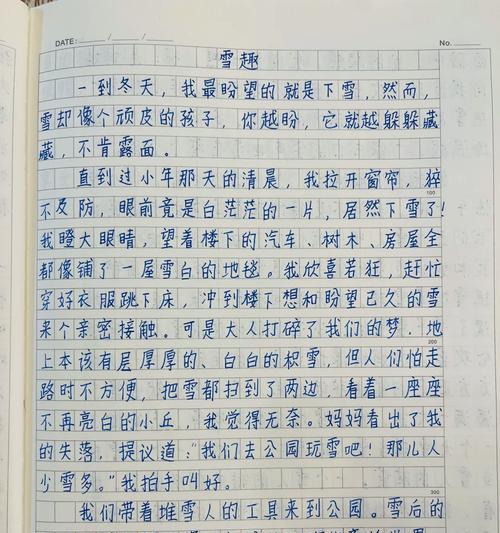 DATE: / /
No.
雪趣
一到冬天，我最盼望的就是下雪，然而，
雪却像个顽皮的孩子，你越盼，它就越躲躲藏
藏，不肯露面。
直到过小年那天的清晨，我拉开窗帘，猝
100
不及防，眼前竟是白茫茫的一片，居然下雪了！
我瞪大眼睛，望着楼下的汽车、树木、房屋全
都像铺了一层雪白的地毯。我欣喜若狂，赶忙
穿好衣服跳下床，冲到楼下想和盼望已久的雪
来个亲密接触。可是大人打碎了我们的梦，地
200
上本该有层厚厚的、白白的积雪，但人们怕走
路时不方便，把雪都扫到了两边，看着一座座
不再亮白的小丘，我觉得无奈。妈妈看出了我
的失落，提议道：“我们去公园玩雪吧！那儿人
少雪多。”我拍手叫好。
300
我们带着堆雪人的工具来到公园。雪后的